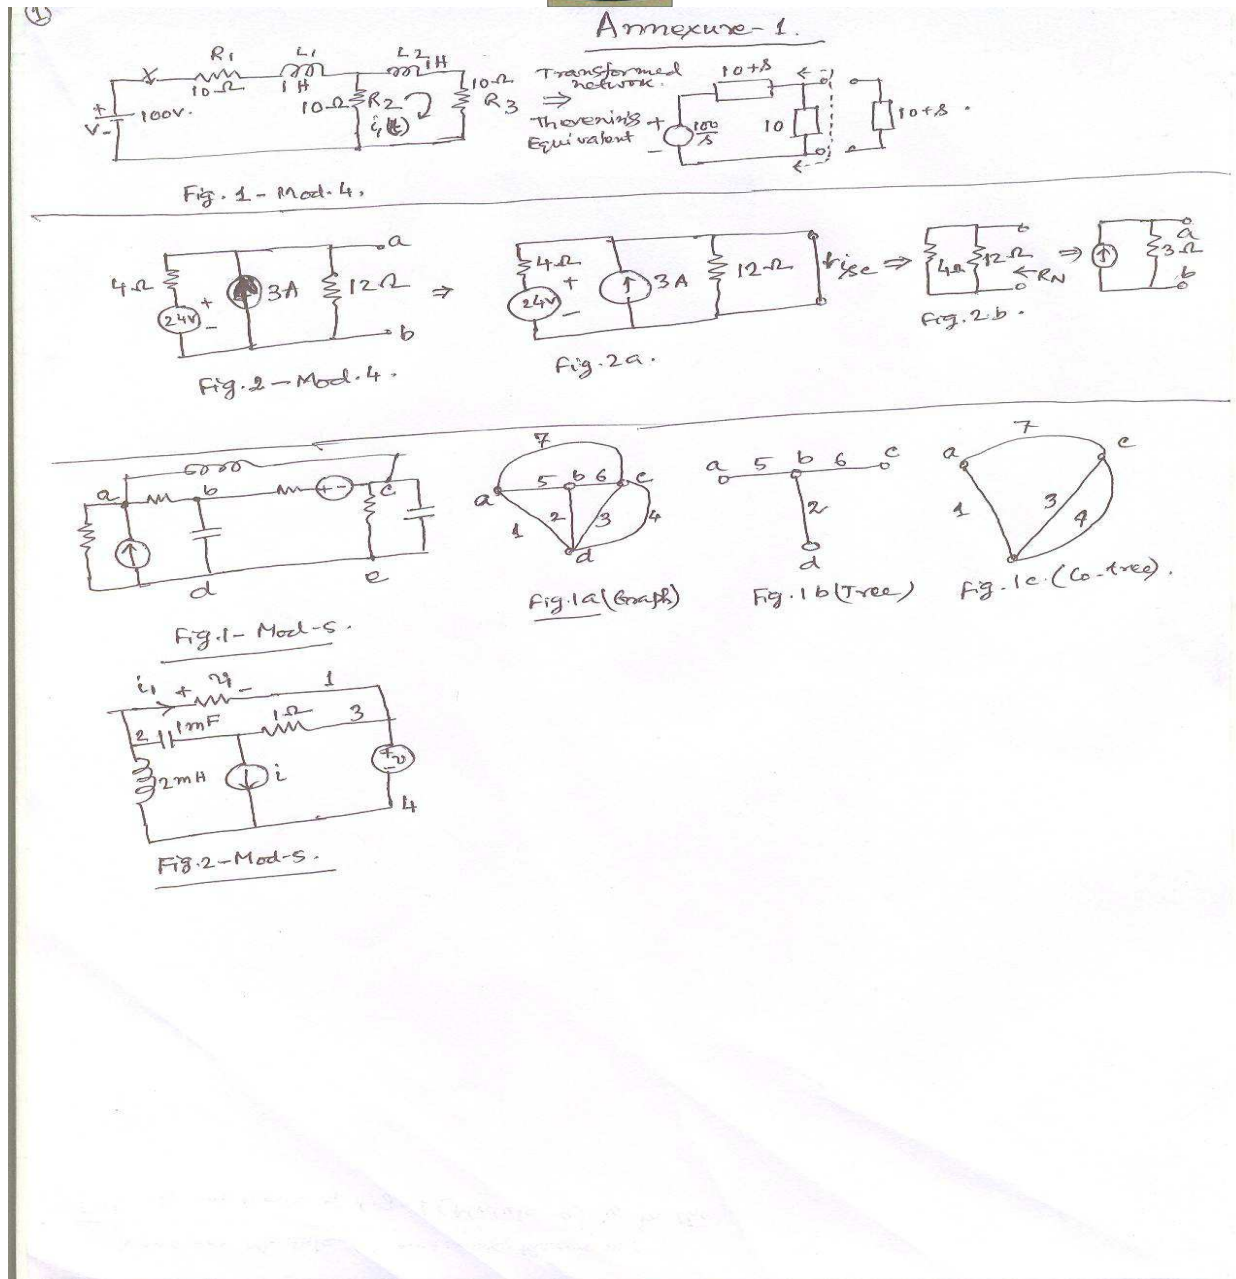 1
Annexure-1.
R1 10Ω L1 1H L2 1H 10Ω R2 i1(t) 10Ω R3
+ V- 100V.
Transformed network.
⇒
Thevenin's Equivalent
10+s
+ 100/s -
10
10+s.
Fig. 1 - Mod. 4.
4Ω 24V + - 3A 12Ω a b ⇒
Fig. 2 - Mod. 4.
4Ω + 24V - 3A 12Ω isc ⇒
Fig. 2a.
4Ω 12Ω ← RN ⇒
Fig. 2.b.
a 3Ω b
a b + - c d e
Fig. 1 - Mod-5.
7 a 5 b 6 c 1 2 3 4 d
Fig. 1a (Graph)
a 5 b 6 c 2 d
Fig. 1b (Tree)
7 a c 1 3 4
Fig. 1c. (Co-tree).
i1 + v1 - 1
2 1mF 1Ω 3
2mH i + v -
4
Fig. 2 - Mod-5.